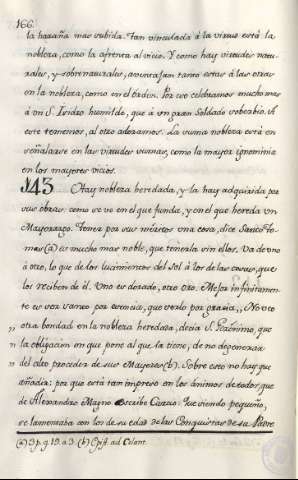 166.
la hazaña mas subida. Tan vinculada à la virtud està la
nobleza, como la afrenta al vicio. Y como hay virtudes natu-
rales, y sobrenaturales, aventajan tanto estas à las otras
en la nobleza, como en el orden. Por eso celebramos mucho mas
à un S. Isidro humilde, que à un gran Soldado sobervio. A
este tememos, al otro adoramos. La suma nobleza està en
señalarse en las virtudes sumas, como la mayor ignominia
en los mayores vicios.
143 Hay nobleza heredada, y la hay adquirida por
sus obras: como se ve en el que funda, y en el que hereda un
Mayorazgo. Tener por sus meritos una cosa, dice Santo Tho-
mas (a) es mucho mas noble, que tenerla sin ellos. Va de uno
à otro, lo que de los lucimientos del sol à los de las cosas, que
los reciben de èl. Uno es dorado, otro oro. Mejor infinitamen-
te es ser sance por esencia, que serlo por gracia. „ No veo
„ otra bondad en la nobleza heredada, decia S. Geronimo, que
„ la obligacion en que pone al que la tiene, de no degenerar
„ del alto proceder de sus Mayores (b). Sobre esto no hay que
añadir: por que està tan impreso en los animos de todos, que
de Alexandro Magno escribe Curcio: Que siendo pequeño,
se lamentaba con los de su edad de las Conquistas de su Padre
(a) 3 p. q. 19. a. 3. (b) Epist. ad Celant.